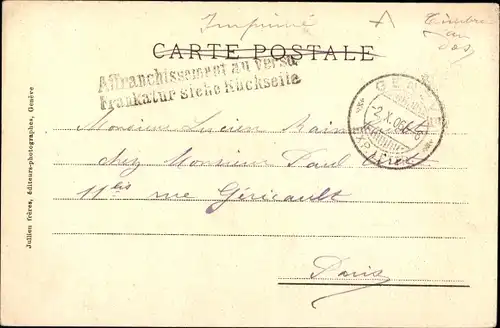 Imprimé
Timbre
au
dos
CARTE POSTALE
Affranchissement au verso
Frankatur siehe Rückseite
2.X.06
Monsieur Lucien
chez Monsieur Paul
11 bis rue Géricault
Paris
Jullien frères, éditeurs-photographes, Genève